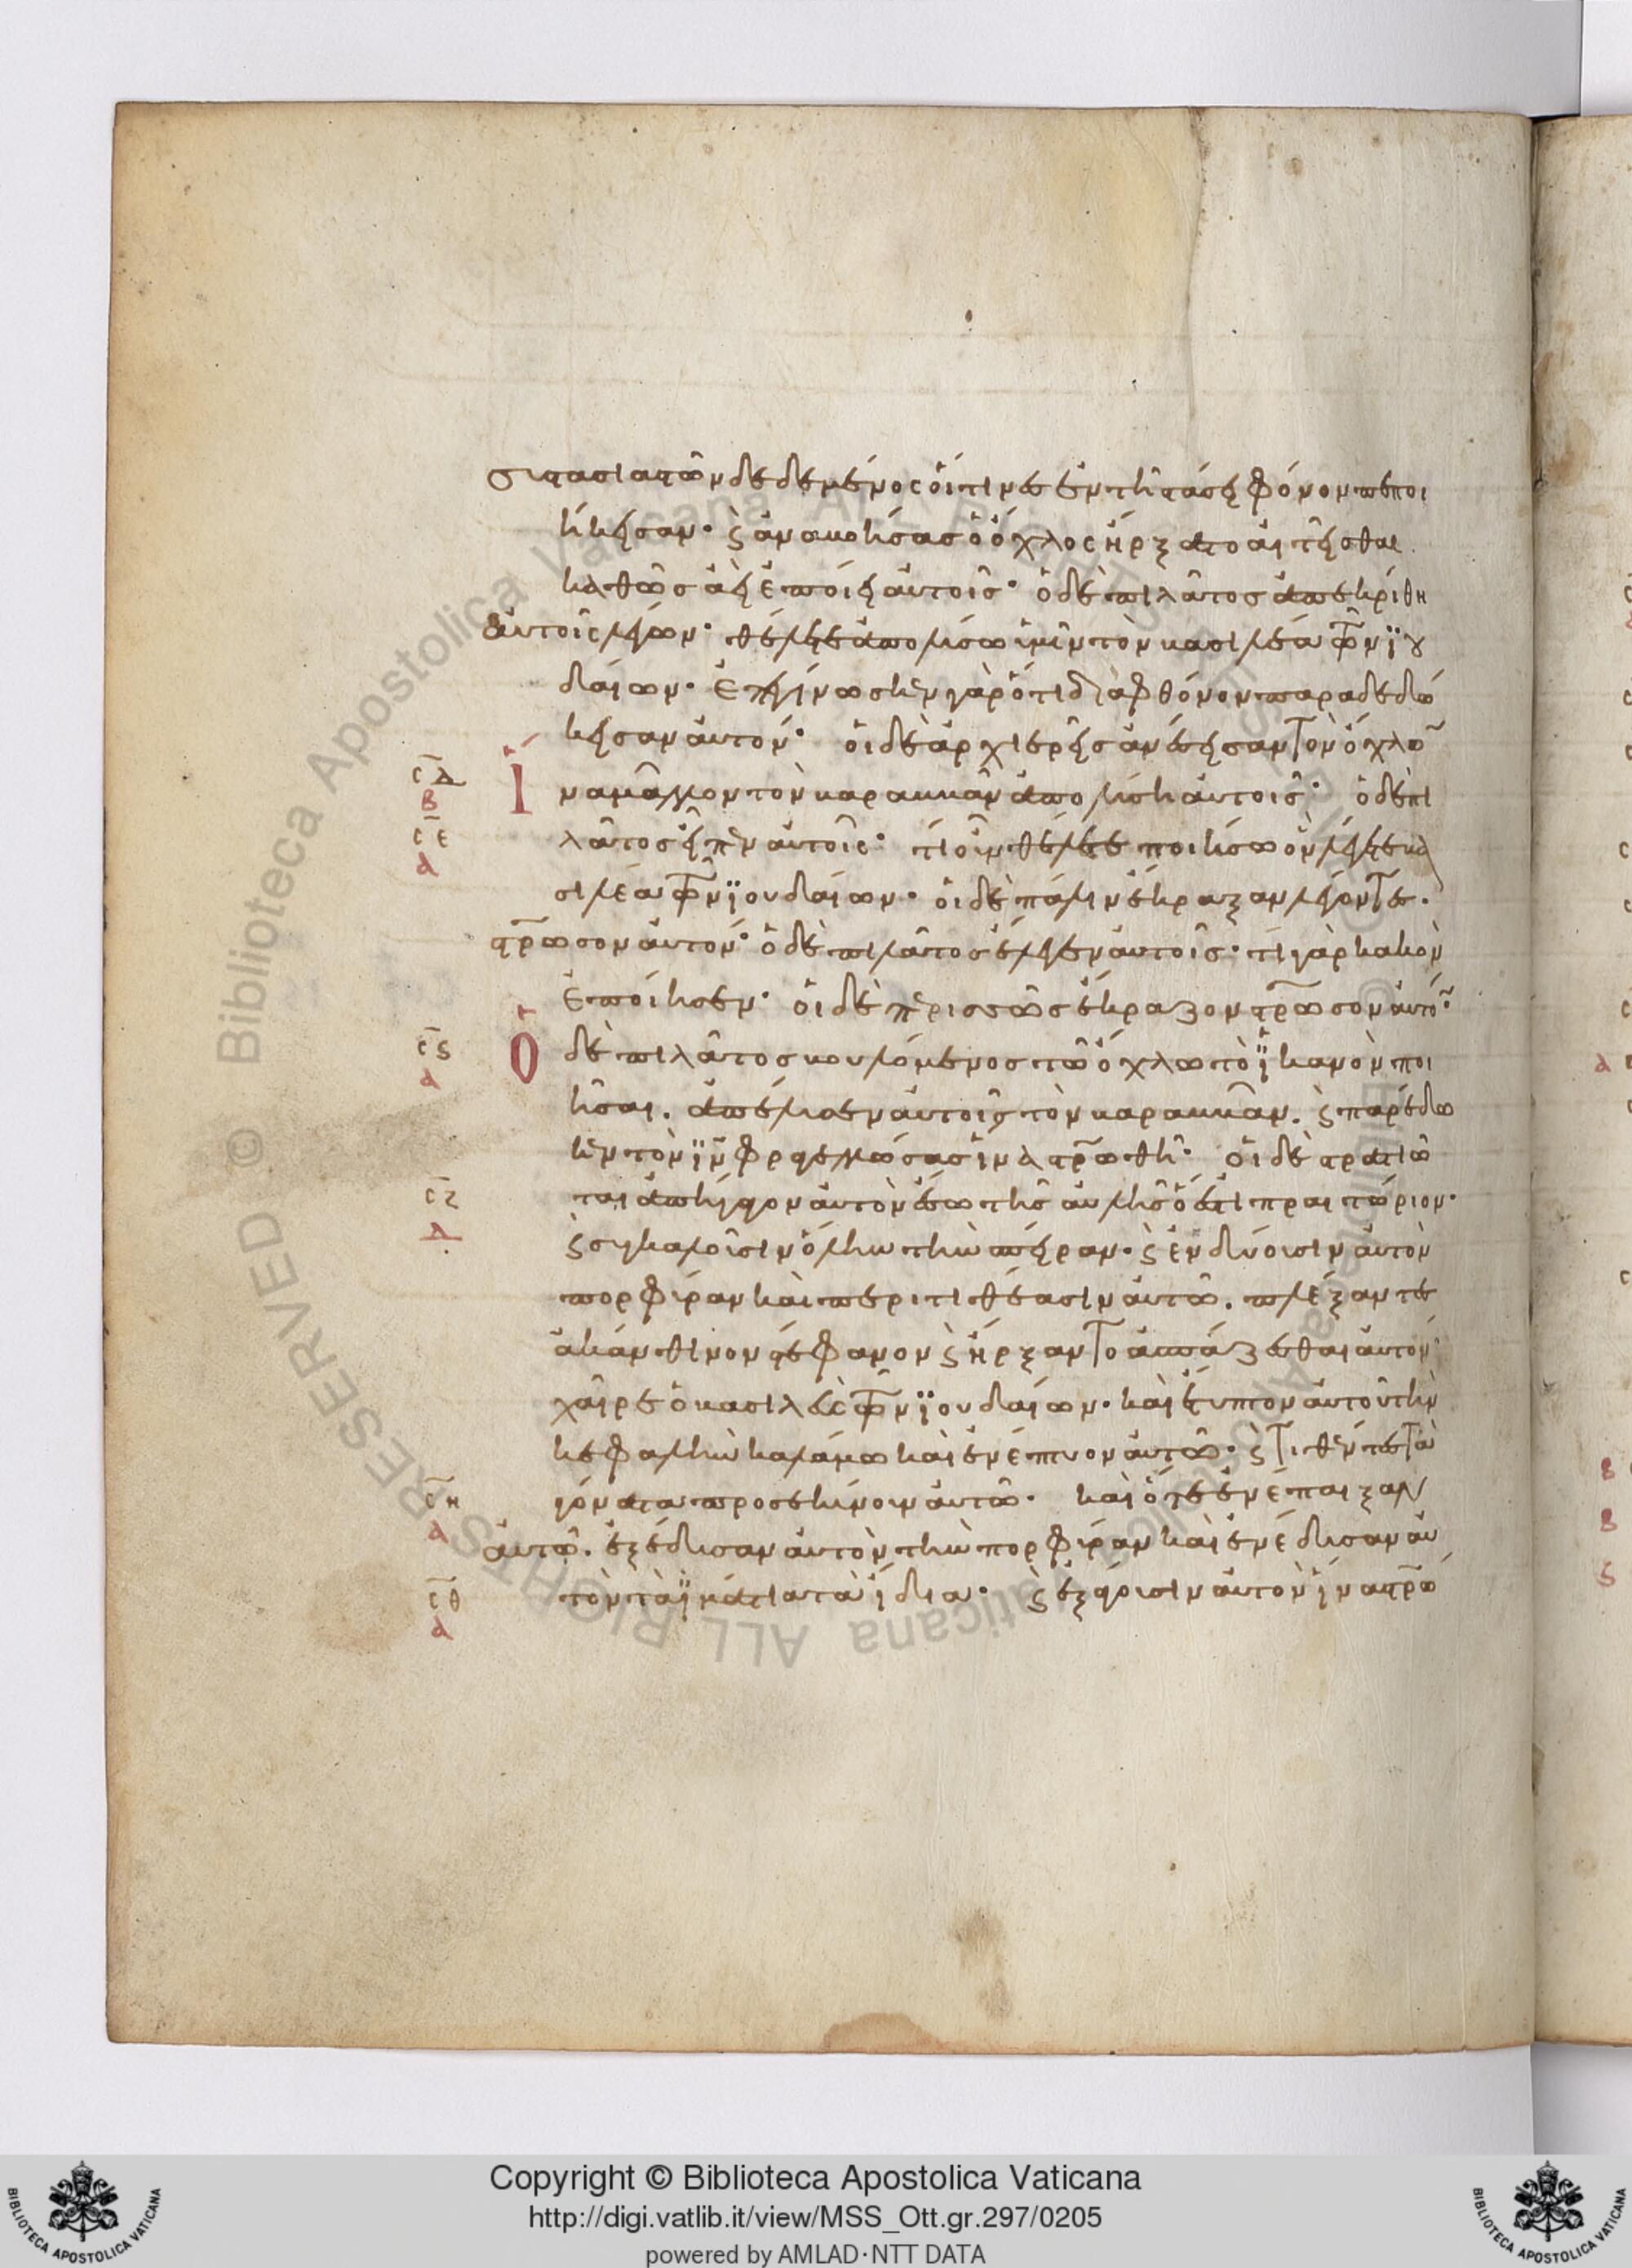 συστασιαστῶν δεδεμένος οἵτινες ἐν τῆ στάσει φόνον πεποι
ήκεισαν· ϗ ἀναβοήσας ὁ ὄχλος ἤρξατο αἰτεῖσθαι
καθὼς ἀεὶ ἐποίει αὐτοῖς· ὁ δὲ πιλᾶτος ἀπεκρίθη
αὐτοῖς λέγων· θέλετε ἀπολύσω ὑμῖν τὸν βασιλέα τῶν ϊου
δαίων· ἐγίνωσκεν γὰρ ὅτι διὰ φθόνον παραδεδώ
κεισαν αὐτόν· οἱ δὲ ἀρχιερεῖς ἀνέσεισαν τὸν ὄχλον
ϲ̅δ̅
β
ἵνα μᾶλλον τὸν βαραββᾶν ἀπολύση αὐτοῖς· ὁ δὲ πι
ϲ̅ε̅
α
λᾶτος εἶπεν αὐτοῖς· τί οὖν θέλετε ποιήσω ὃν λέγετε βα
σιλέα τῶν ϊουδαίων· οἱ δὲ πάλιν ἔκραξαν λέγοντες·
στ̅ρωσον αὐτόν· ὁ δὲ πιλᾶτος ἔλεγεν αὐτοῖς· τί γὰρ κακὸν
ἐποίησεν· οἱ δὲ περισσῶς ἔκραζον στ̅ρωσον αὐτόν·
ϲ̅ϛ̅
α
Ὁ δὲ πιλᾶτος βουλόμενος τῶ ὄχλω τὸ ϊκανὸν ποι
ῆσαι. ἀπέλυσεν αὐτοῖς τὸν βαραββᾶν. ϗ παρέδω
κεν τὸν ι̅ν̅ φραγελλώσας ἵνα στ̅ρωθῆ· οἱ δὲ στρατιῶ
ϲ̅ζ̅
δ
ται ἀπήγαγον αὐτὸν ἔσω τῆς αὐλῆς ὅ ἐστι πραιτώριον·
ϗ συγκαλοῦσιν ὅλην τὴν σπεῖραν· ϗ ἐνδύουσιν αὐτὸν
πορφύραν καὶ περιτιθέασιν αὐτῶ. πλέξαντες
ἀκάνθινον στέφανον ϗ ἤρξαντο ἀσπάζεσθαι αὐτόν·
χαῖρε ὁ βασιλεὺς τῶν ϊουδαίων· καὶ ἔτυπτον αὐτοῦ τὴν
κεφαλὴν καλάμω καὶ ἐνέπτυον αὐτῶ· ϗ τιθέντες τὰ
ϲ̅η̅
α
γόνατα προσεκύνουν αὐτῶ· καὶ ὅτε ἐνέπαιξαν
αὐτῶ. ἐξέδυσαν αὐτὸν τὴν πορφύραν καὶ ἐνέδυσαν αὐ
ϲ̅θ̅
α
τὸν τὰ ϊμάτια τὰ ἴδια· ϗ ἐξάγουσιν αὐτὸν ἵνα στ̅ρώ
Copyright © Biblioteca Apostolica Vaticana
http://digi.vatlib.it/view/MSS_Ott.gr.297/0205
powered by AMLAD·NTT DATA